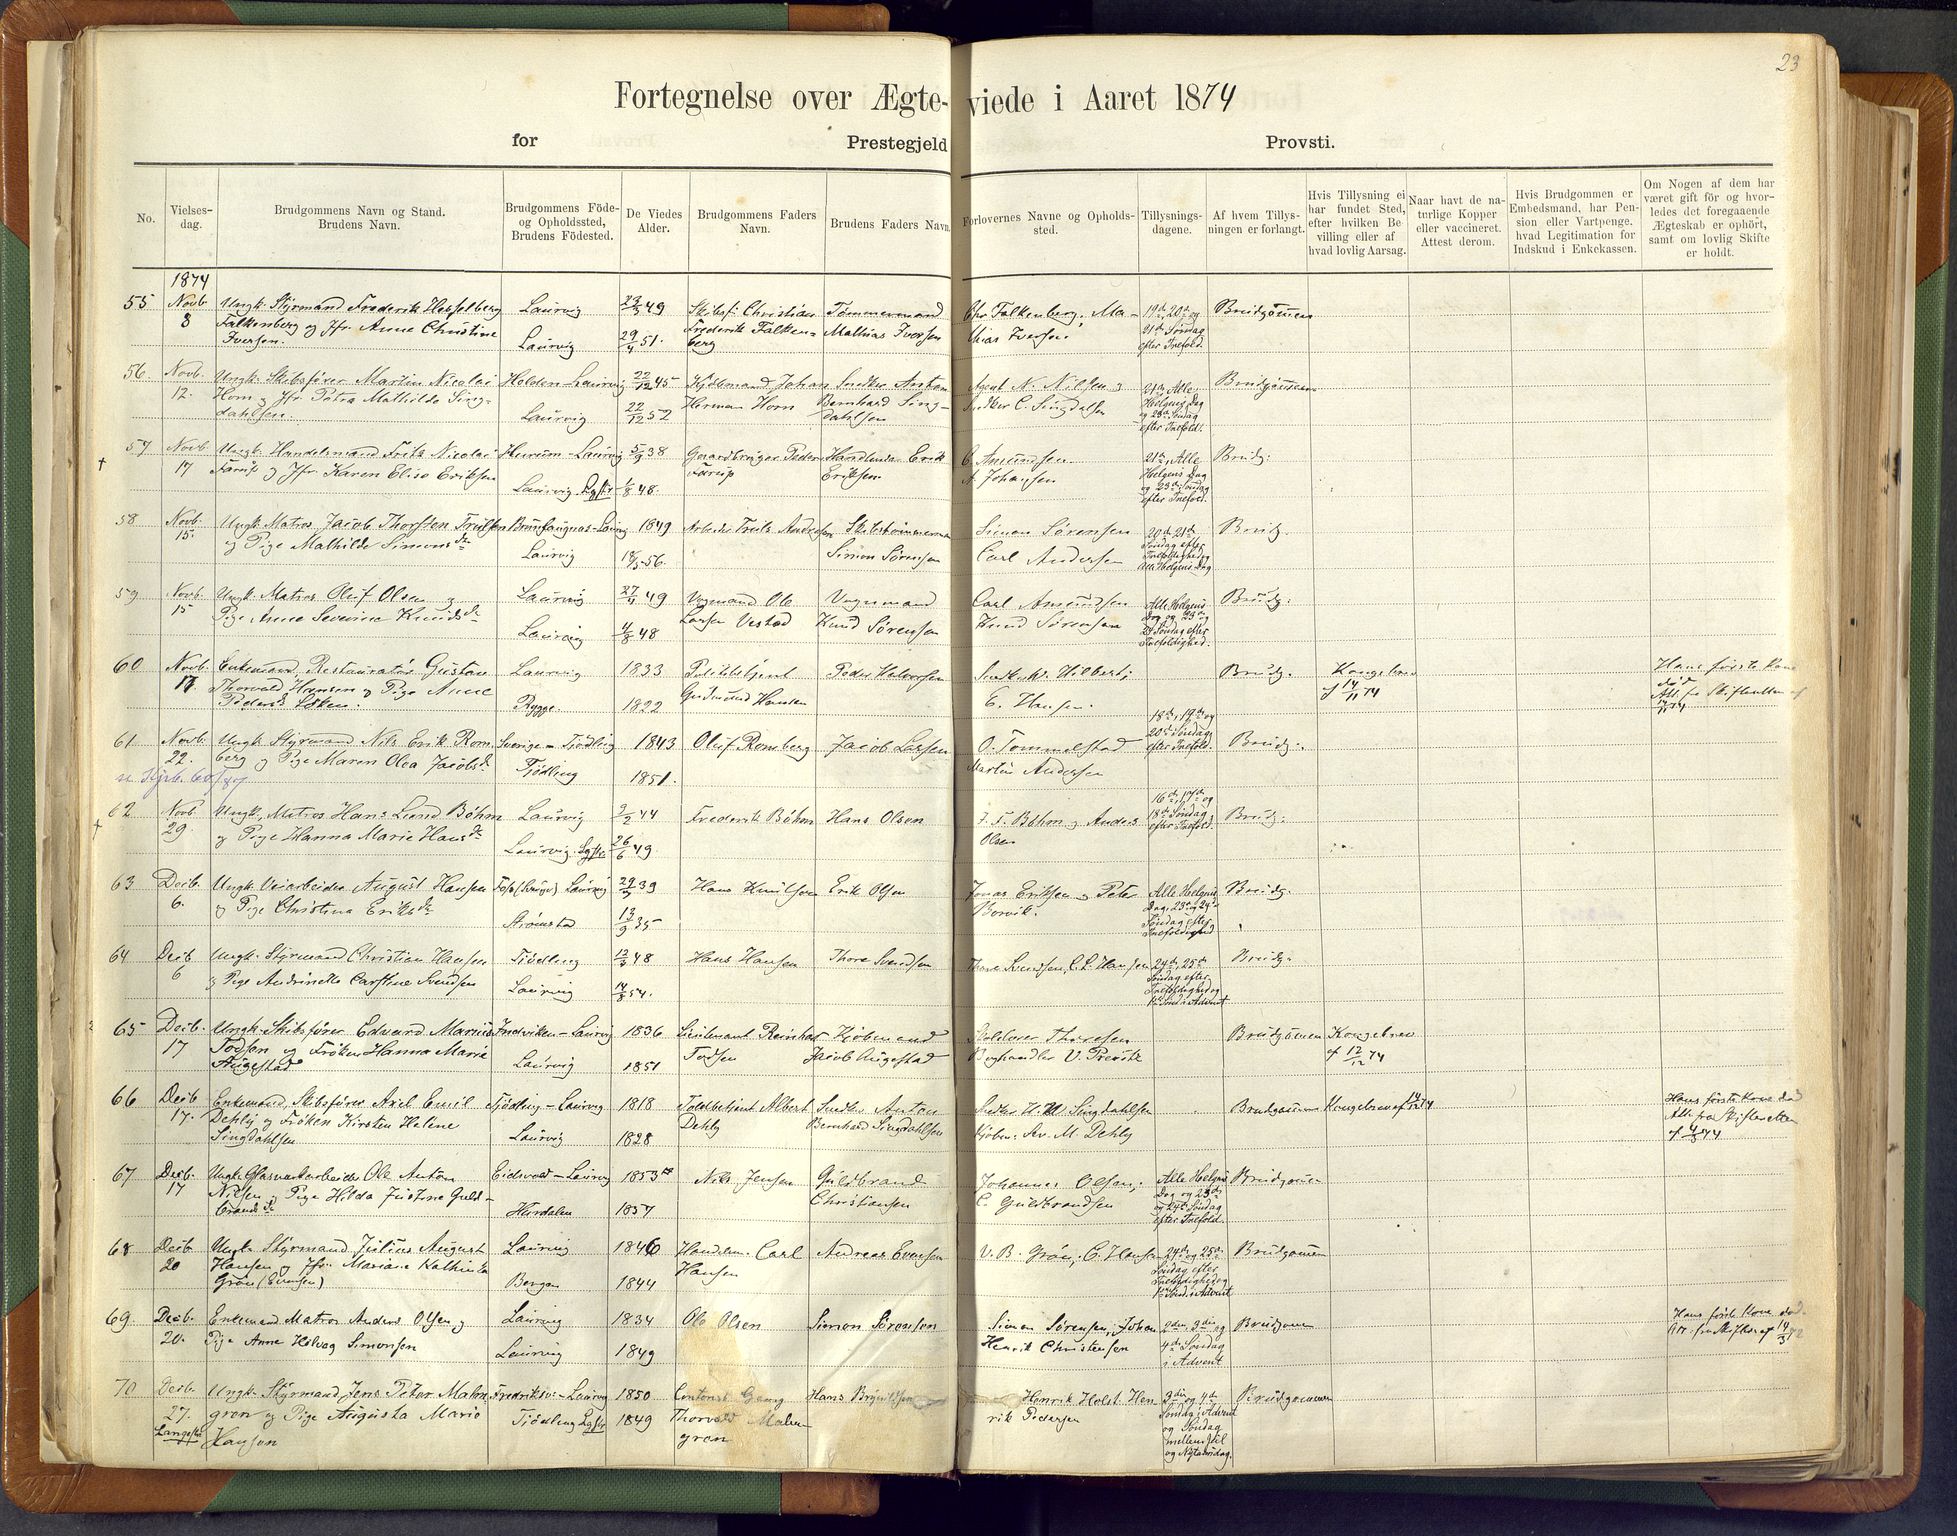 23
Fortegnelse over Ægte- viede i Aaret 1874
for Prestegjeld Provsti.
No.
Vielses-
dag.
Brudgommens Navn og Stand.
Brudens Navn.
Brudgommens Föde-
og Opholdssted,
Brudens Födested.
De Viedes
Alder.
Brudgommens Faders
Navn.
Brudens Faders Navn.
Forlovernes Navne og Opholds-
sted.
Tillysnings-
dagene.
Af hvem Tillys-
ningen er forlangt.
Hvis Tillysning ei
har fundet Sted,
efter hvilken Be-
villing eller af
hvad lovlig Aarsag.
Naar havt de na-
turlige Kopper
eller vaccineret.
Attest derom.
Hvis Brudgommen er
Embedsmand, har Pen-
sion eller Vartpenge,
hvad Legitimation for
Indskud i Enkekassen.
Om Nogen af dem har
været gift för og hvor-
ledes det foregaaende
Ægteskab er ophört,
samt om lovlig Skifte
er holdt.
1874
55 Novb. 8 Ungk. Styrmand Frederik Hesselberg Laurvig 49 Skibsf. Christider Tömmermand Chr Falkenberg, Ma- 19de, 20de og Brudgommen
Falkenberg og Jfr. Anne Christine Frederik Falken- Mathias Iversen thias Iversen 21de Søndag
Iversen. Laurvig 29/4 51. berg efter Trefold.
56. Novb. 12. Ungk. Skibsfører Martin Nicolai Holden-Laurvig 22/12 45 Johan Snedker Anton Agent N. Nilsen og 21de, Alle Brudgommen
Horn og Jfr. Petra Mathilde Sing- Herman Horn Bernhard Sing- Snedker C. Singdalsen Helgens Dag
dahlsen Laurvig 22/12 52 dahlsen og 23de Søndag
efter Trefold.
57 Novb. 17 Ungk. Handelsmand Fritz Nicolai Hurum-Laurvig 5/9 38 Gaardbruger Peder Handlende Erik C. Amundsen 21de, Alle Brudg:
Farup og Jfr. Karen Elise Eriksen Farup Eriksen A. Johansen Helgens Dag
Laurvig Lgstr 1/8 48. og 23de Søndag
efter Trefold.
58 Novb. 15. Ungk. Matros Jacob Thorsten Trulsen 1849 Arbeider Truls Andersen Skibstömmermand Simon Sørensen 20de 21de Brudg.
og Pige Mathilde Simonsdr Laurvig 56. Simon Sørensen Carl Andersen Søndag efter
Trefoldighed og
Alle Helgens Dag
59 Novb. 15 Ungk. Matros Oluf Olsen og Laurvig 27/4 49 Vognmand Ole Vognmand Carl Amundsen Alle Helgens Brudg:
Pige Anne Severine Knudsdr Laurvig 4/8 48 Larsen Vestad Knud Sørensen Knud Sørensen Dag og 23de og
24 Søndag efter
Trefoldighed.
60 Novb. 17 Enkemand, Restauratør Gustav Laurvig 1833 Politibetjent Peder Halvorsen Brudg. Kongebrev Hans første Kone
Thorvald Hansen og Pige Anne Gudmund Hansen E. Hansen. af 14/11 74 død
Peders Løken. Rygge. 1822 Att. fra Skifteretten af
61 Novb. 22. Ungk Styrmand Nils Erik Rom- Sverige-Tjödling 1843 Oluf Romberg Jacob Larsen O. Tommelstad 18de, 19de og Brudg:
berg og Pige Maren Olea Jacobsdr Tjödling 1851. Martin Andersen 20de Søndag
efter Trefold.
62 Novb 29 Ungk. Matros Hans Lund Bøhm Laurvig 9/2 44 Frederik Bøhm Hans Olsen J. F. Bøhm og Anders 16de, 17de og Brudg:
og Pige Hanna Marie Hansdr Laurvig. Lgstr 26/6 49. Olsen 18de Søndag
efter Trefold.
63 Decb. 6. Ungk Veiarbeider August Hansen Laurvig 39 Hans Knudsen Erik Olsen Jonas Eriksen og Peter Alle Helgens Brudg.
og Pige Christina Eriksdr Strömstad 13/9 35 Borvik. Dag, 23de og 24de
Søndag efter
Trefoldighed
64 Decb 6 Ungk. Styrmand Christian Hansen Tjödling 48 Hans Hansen Thore Svendsen Thore Svendsen, C. C. Hansen 24de, 25de Brudg.
og Pige Andrinette Carstine Svendsen Laurvig 14/8 54. Søndag efter
Trefoldighed og
1ste Sønd i Advent
65 Decb. 17 Ungk. Skibsfører Edvard Marius Laurvig 1836 Lieutenant Reinhar Kjöbmand Thoresen Brudgommen Kongebrev
Todsen og Frøken Hanna Marie Todsen Jacob Augestad Boghandler V. af 12/12 74
Augestad Laurvig 1851
66 Decb 17. Enkemand, Skibsfører Axel Emil Tjödling-Laurvig 1818 Toldbetjent Albert Snedker Anton Snedker H. M. Singdahlsen Brudgommen Kongebrev af Hans første Kone død
Dehly og Frøken Kirsten Helene Dehly Bernhard Singdahlsen M. Dehly Att. fra Skifteretten
Singdahlsen Laurvig 1828
67 Decb. 17 Ungk. Glasværkarbeider Ole Anton Eidsvold-Laurvig 1853 Nils Jensen Guldbrand Johannes Olsen, Alle Helgens Brudgommen
Nilsen og Pige Hilda Justine Guld- Christiansen C. Guldbrandsen Dag og 23de
brandsdr Hurdalen 1857 og 24de Søndag
efter Trefold.
68 Decb. 20 Ungk. Styrmand, Julius August Laurvig 1846 Handelsm. Carl Andreas Evensen V. B. Grøn, C. Hansen 24de og 25de Brudgommen
Hansen og Jfr. Mariane Kathinka Hansen Søndag efter
Grøn (Evensen) Bergen 1844 Trefoldighed og
1ste Sønd. i Advent
69. Decb. 20. Enkemand Matros Anders Olsen og Laurvig 1834 Ole Olsen Simon Sørensen Simon Sørensen, Johan 2den, 3die og Brudgommen Hans første Kone død.
Pige Anne Helvog Simonsen Laurvig 1849 Henrik Christensen 4de Søndag
i Advent
70 Decb. 27. Ungk. Styrmand, Jens Peter Malm- Fredriksv.-Laurvig 1850 Contorist Georg Hans Henrik Holst Hen 3die og 4de Brudgommen
gren og Pige Augusta Marie Tjödling Lgstr 1849 Thorvald Malm- rik Pedersen Søndag i Advent
Langestr. Hansen gren og Søndag
mellem Jul
og Nytaarsdag.